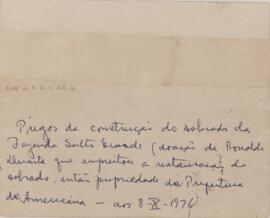 Pregos da construção do sobrado da
Fazenda Salto Grande (doação de Ronaldo
Duarte que empreitou a restauração do
sobrado, então propriedade da Prefeitura
de Americana — aos 8-X-1976